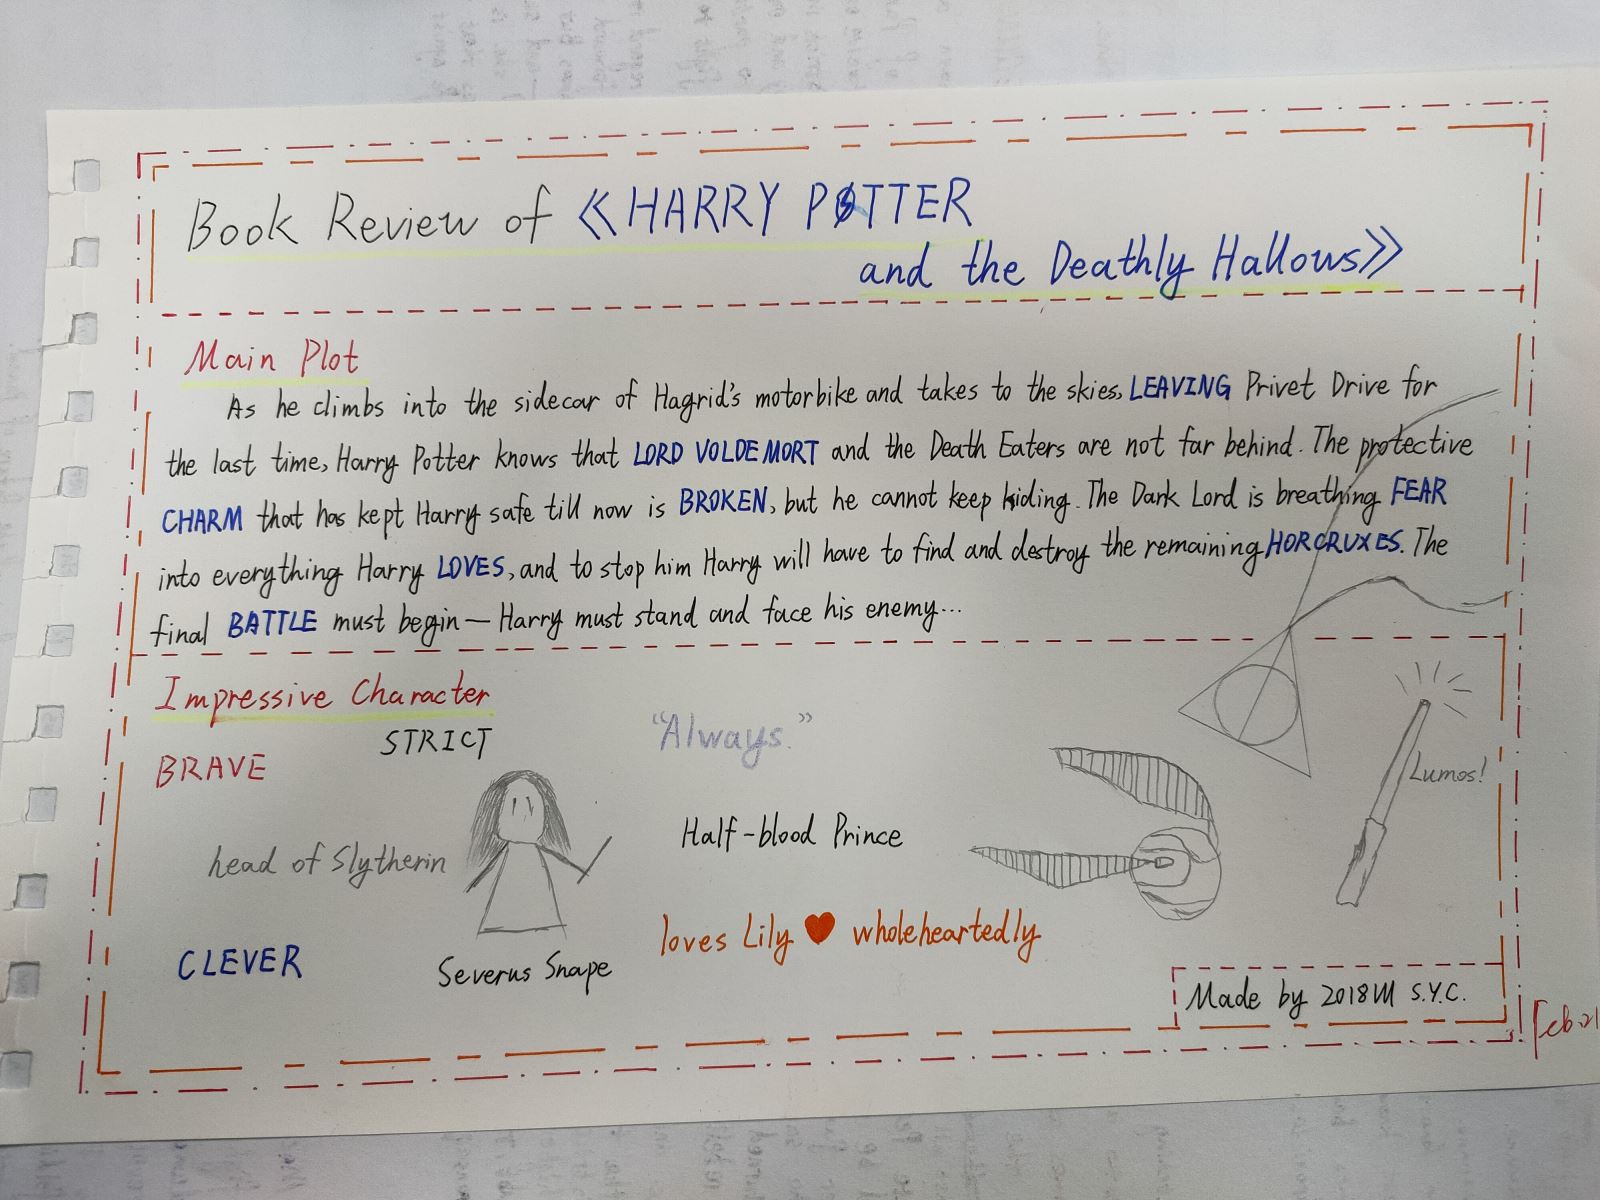 Book Review of 《HARRY POTTER
and the Deathly Hallows》
Main Plot
As he climbs into the sidecar of Hagrid's motorbike and takes to the skies, LEAVING Privet Drive for
the last time, Harry Potter knows that LORD VOLDEMORT and the Death Eaters are not far behind. The protective
CHARM that has kept Harry safe till now is BROKEN, but he cannot keep hiding. The Dark Lord is breathing FEAR
into everything Harry LOVES, and to stop him Harry will have to find and destroy the remaining HORCRUXES. The
final BATTLE must begin — Harry must stand and face his enemy...
Impressive Character
STRICT
"Always."
BRAVE
Lumos!
Half-blood Prince
head of Slytherin
loves Lily ♥ wholeheartedly
CLEVER
Severus Snape
Made by 2018 S.Y.C.
Feb.21